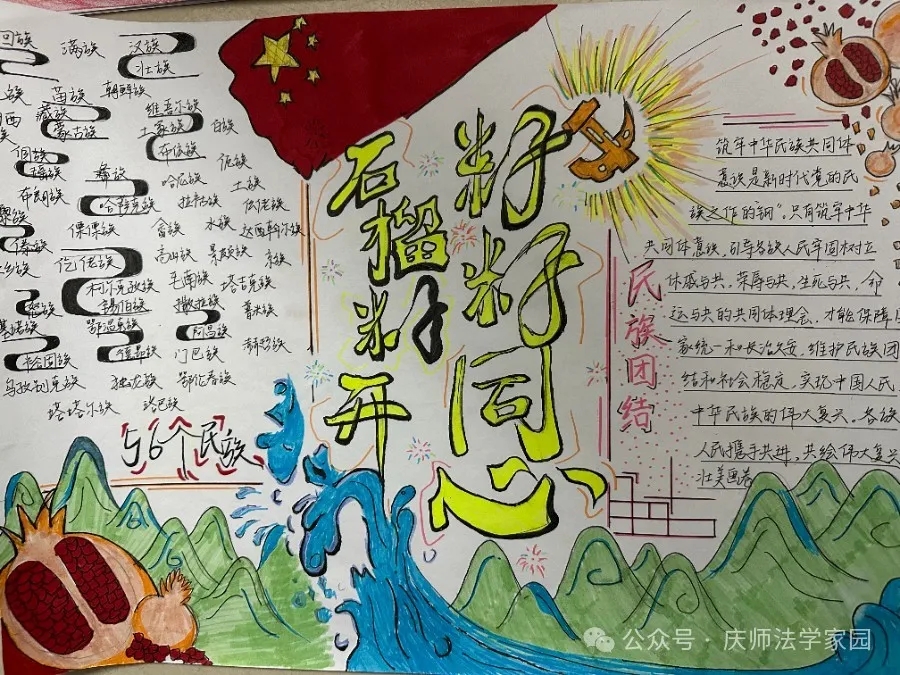 回族 满族 汉族
壮族
苗族 朝鲜族
藏族 维吾尔族
蒙古族 土家族 白族
布依族
侗族 彝族 佤族
瑶族 哈尼族 土族
布朗族 哈萨克族 拉祜族 仡佬族
傈僳族 畲族 水族 达斡尔族
仫佬族 高山族 景颇族
柯尔克孜族 毛南族 塔吉克族
锡伯族 撒拉族 普米族
鄂温克族 阿昌族
裕固族 德昂族 门巴族 赫哲族
乌孜别克族 独龙族 鄂伦春族
塔塔尔族 珞巴族
56个民族
石榴籽开
籽籽同心
民族团结
筑牢中华民族共同体
意族是新时代党的民
族之作的“钢”，只有筑牢中华
共同体意族，引导各族人民牢固树立
休戚与共，荣辱与共，生死与共，命
运与共的共同体理念，才能保障
家统一和长治久安，维护民族团
结和社会稳定，实现中国人民，
中华民族的伟大复兴。各族
人民携手共进，共绘伟大复兴
壮美画卷
公众号·庆师法学家园